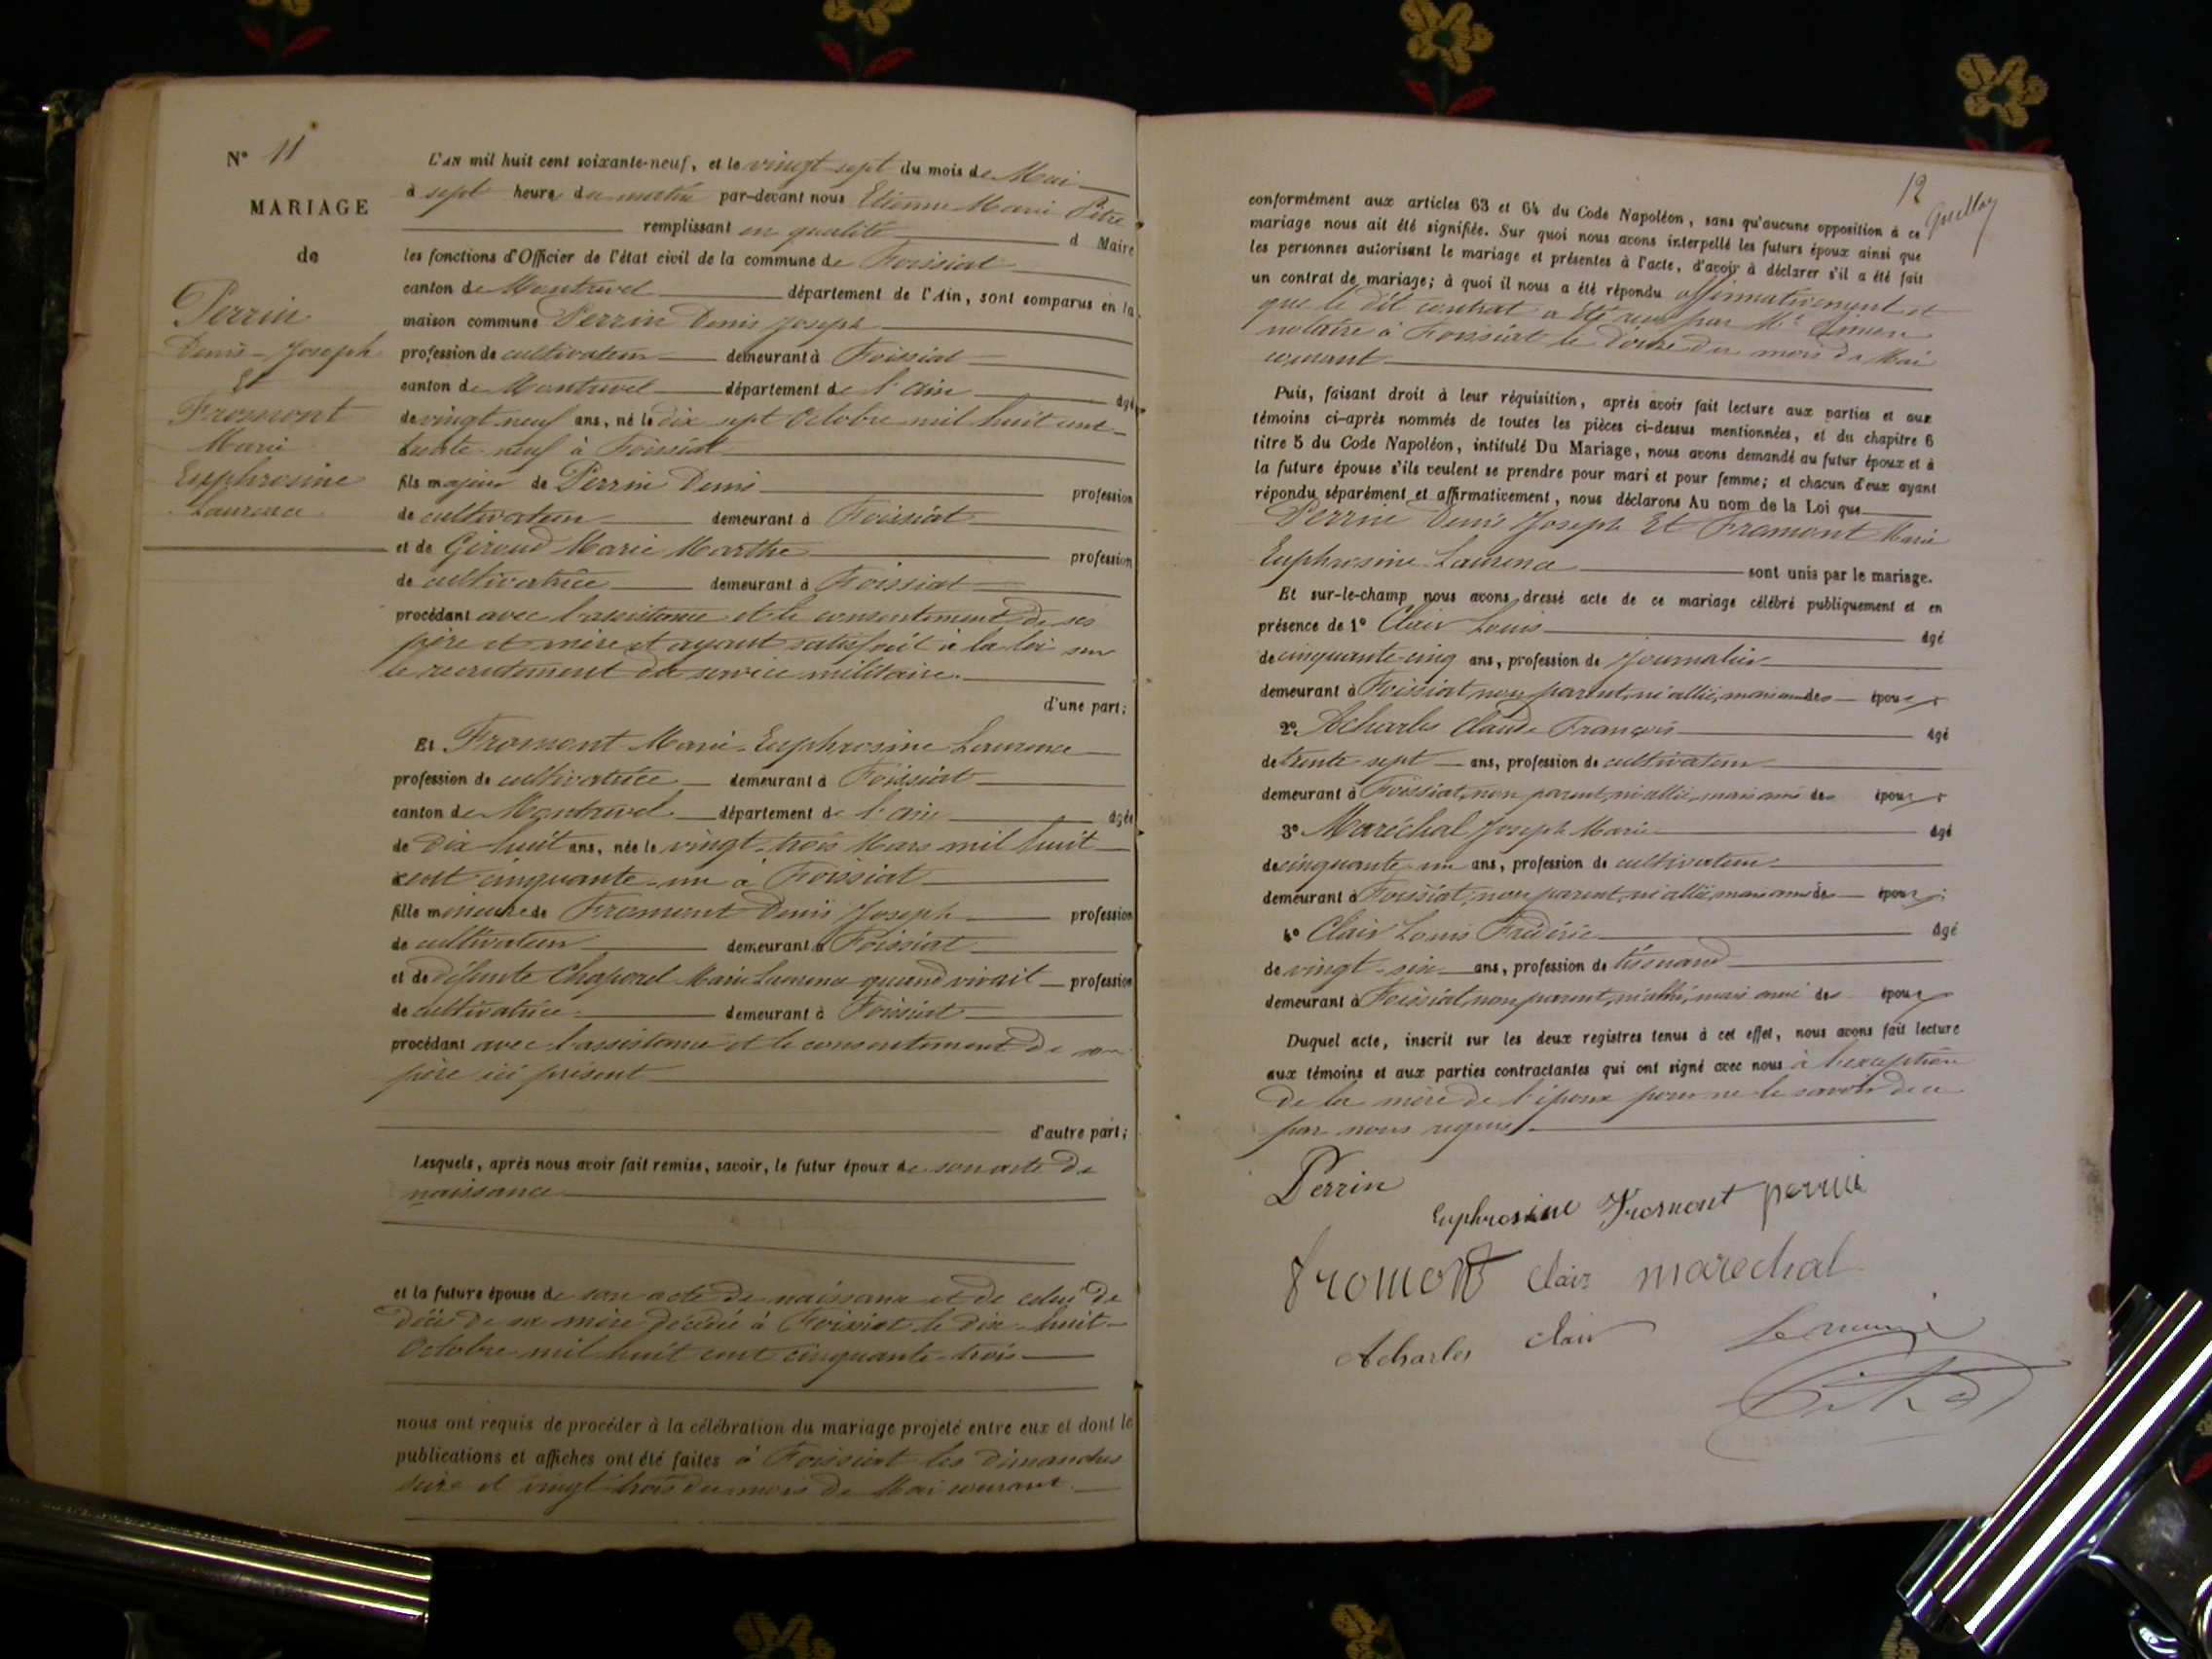 N° 11
MARIAGE
de
Perrin
Denis-Joseph
Et
Fromont
Marie
Euphrosine
Laurence
L'AN mil huit cent soixante-neuf, et le vingt-sept du mois de Mai
à sept heures du matin par-devant nous Etienne Marie Pitre
remplissant en qualité d Maire
les fonctions d'Officier de l'état civil de la commune de Foissiat
canton de Montrevel département de l'Ain, sont comparus en la
maison commune Perrin Denis Joseph
profession de cultivateur demeurant à Foissiat
canton de Montrevel département de l'ain âgé
de vingt neuf ans, né le dix sept Octobre mil huit cent
trente-neuf à Foissiat
fils majeur de Perrin Denis profession
de cultivateur demeurant à Foissiat
et de Giroud Marie Marthe profession
de cultivatrice demeurant à Foissiat
procédant avec l'assistance et le consentement de ses
père et mère et ayant satisfait à la loi sur
le recrutement du service militaire.
d'une part;
Et Fromont Marie-Euphrosine Laurence
profession de cultivatrice demeurant à Foissiat
canton de Montrevel département de l'ain âgée
de Dix-huit ans, née le vingt-trois Mars mil huit
cent cinquante-un à Foissiat
fille mineure de Fromont Denis Joseph profession
de cultivateur demeurant à Foissiat
et de défunte Chaparel Marie Laurence quand vivait profession
de cultivatrice demeurant à Foissiat
procédant avec l'assistance et le consentement de son
père ici présent
d'autre part;
Lesquels, après nous avoir fait remise, savoir, le futur époux de son acte de
naissance
et la future épouse de son acte de naissance et de celui de
décès de sa mère décédée à Foissiat le dix-huit
Octobre mil huit cent cinquante-trois
nous ont requis de procéder à la célébration du mariage projeté entre eux et dont le
publications et affiches ont été faites à Foissiat les dimanches
seize et vingt-trois du mois de Mai courant.
12
conformément aux articles 63 et 64 du Code Napoléon, sans qu'aucune opposition à ce
mariage nous ait été signifiée. Sur quoi nous avons interpellé les futurs époux ainsi que
les personnes autorisant le mariage et présentes à l'acte, d'avoir à déclarer s'il a été fait
un contrat de mariage; à quoi il nous a été répondu affirmativement et
que le dit contrat a été reçu par Me
notaire à Foissiat le du mois de Mai
courant
Puis, faisant droit à leur réquisition, après avoir fait lecture aux parties et aux
témoins ci-après nommés de toutes les pièces ci-dessus mentionnées, et du chapitre 6
titre 5 du Code Napoléon, intitulé Du Mariage, nous avons demandé au futur époux et à
la future épouse s'ils veulent se prendre pour mari et pour femme; et chacun d'eux ayant
répondu séparément et affirmativement, nous déclarons Au nom de la Loi que
Perrin Denis Joseph Et Fromont Marie
Euphrosine Laurence sont unis par le mariage.
Et sur-le-champ nous avons dressé acte de ce mariage célébré publiquement et en
présence de 1° Clair Louis âgé
de cinquante-cinq ans, profession de Journalier
demeurant à Foissiat, non parent, ni allié, mais ami des époux
2° Acharles Claude François âgé
de trente-sept ans, profession de cultivateur
demeurant à Foissiat, non parent, ni allié, mais ami des époux
3° Maréchal Joseph Marie âgé
de cinquante-un ans, profession de cultivateur
demeurant à Foissiat, non parent, ni allié, mais ami des époux
4° Clair Louis Frédéric âgé
de vingt-six ans, profession de tisserand
demeurant à Foissiat, non parent, ni allié, mais ami des époux
Duquel acte, inscrit sur les deux registres tenus à cet effet, nous avons fait lecture
aux témoins et aux parties contractantes qui ont signé avec nous à l'exception
de la mère de l'époux pour ne le savoir de ce
par nous requis
Perrin
Euphrosine Fromont perrin
fromont Clair marechal
Acharles Clair Le maire
Pitre